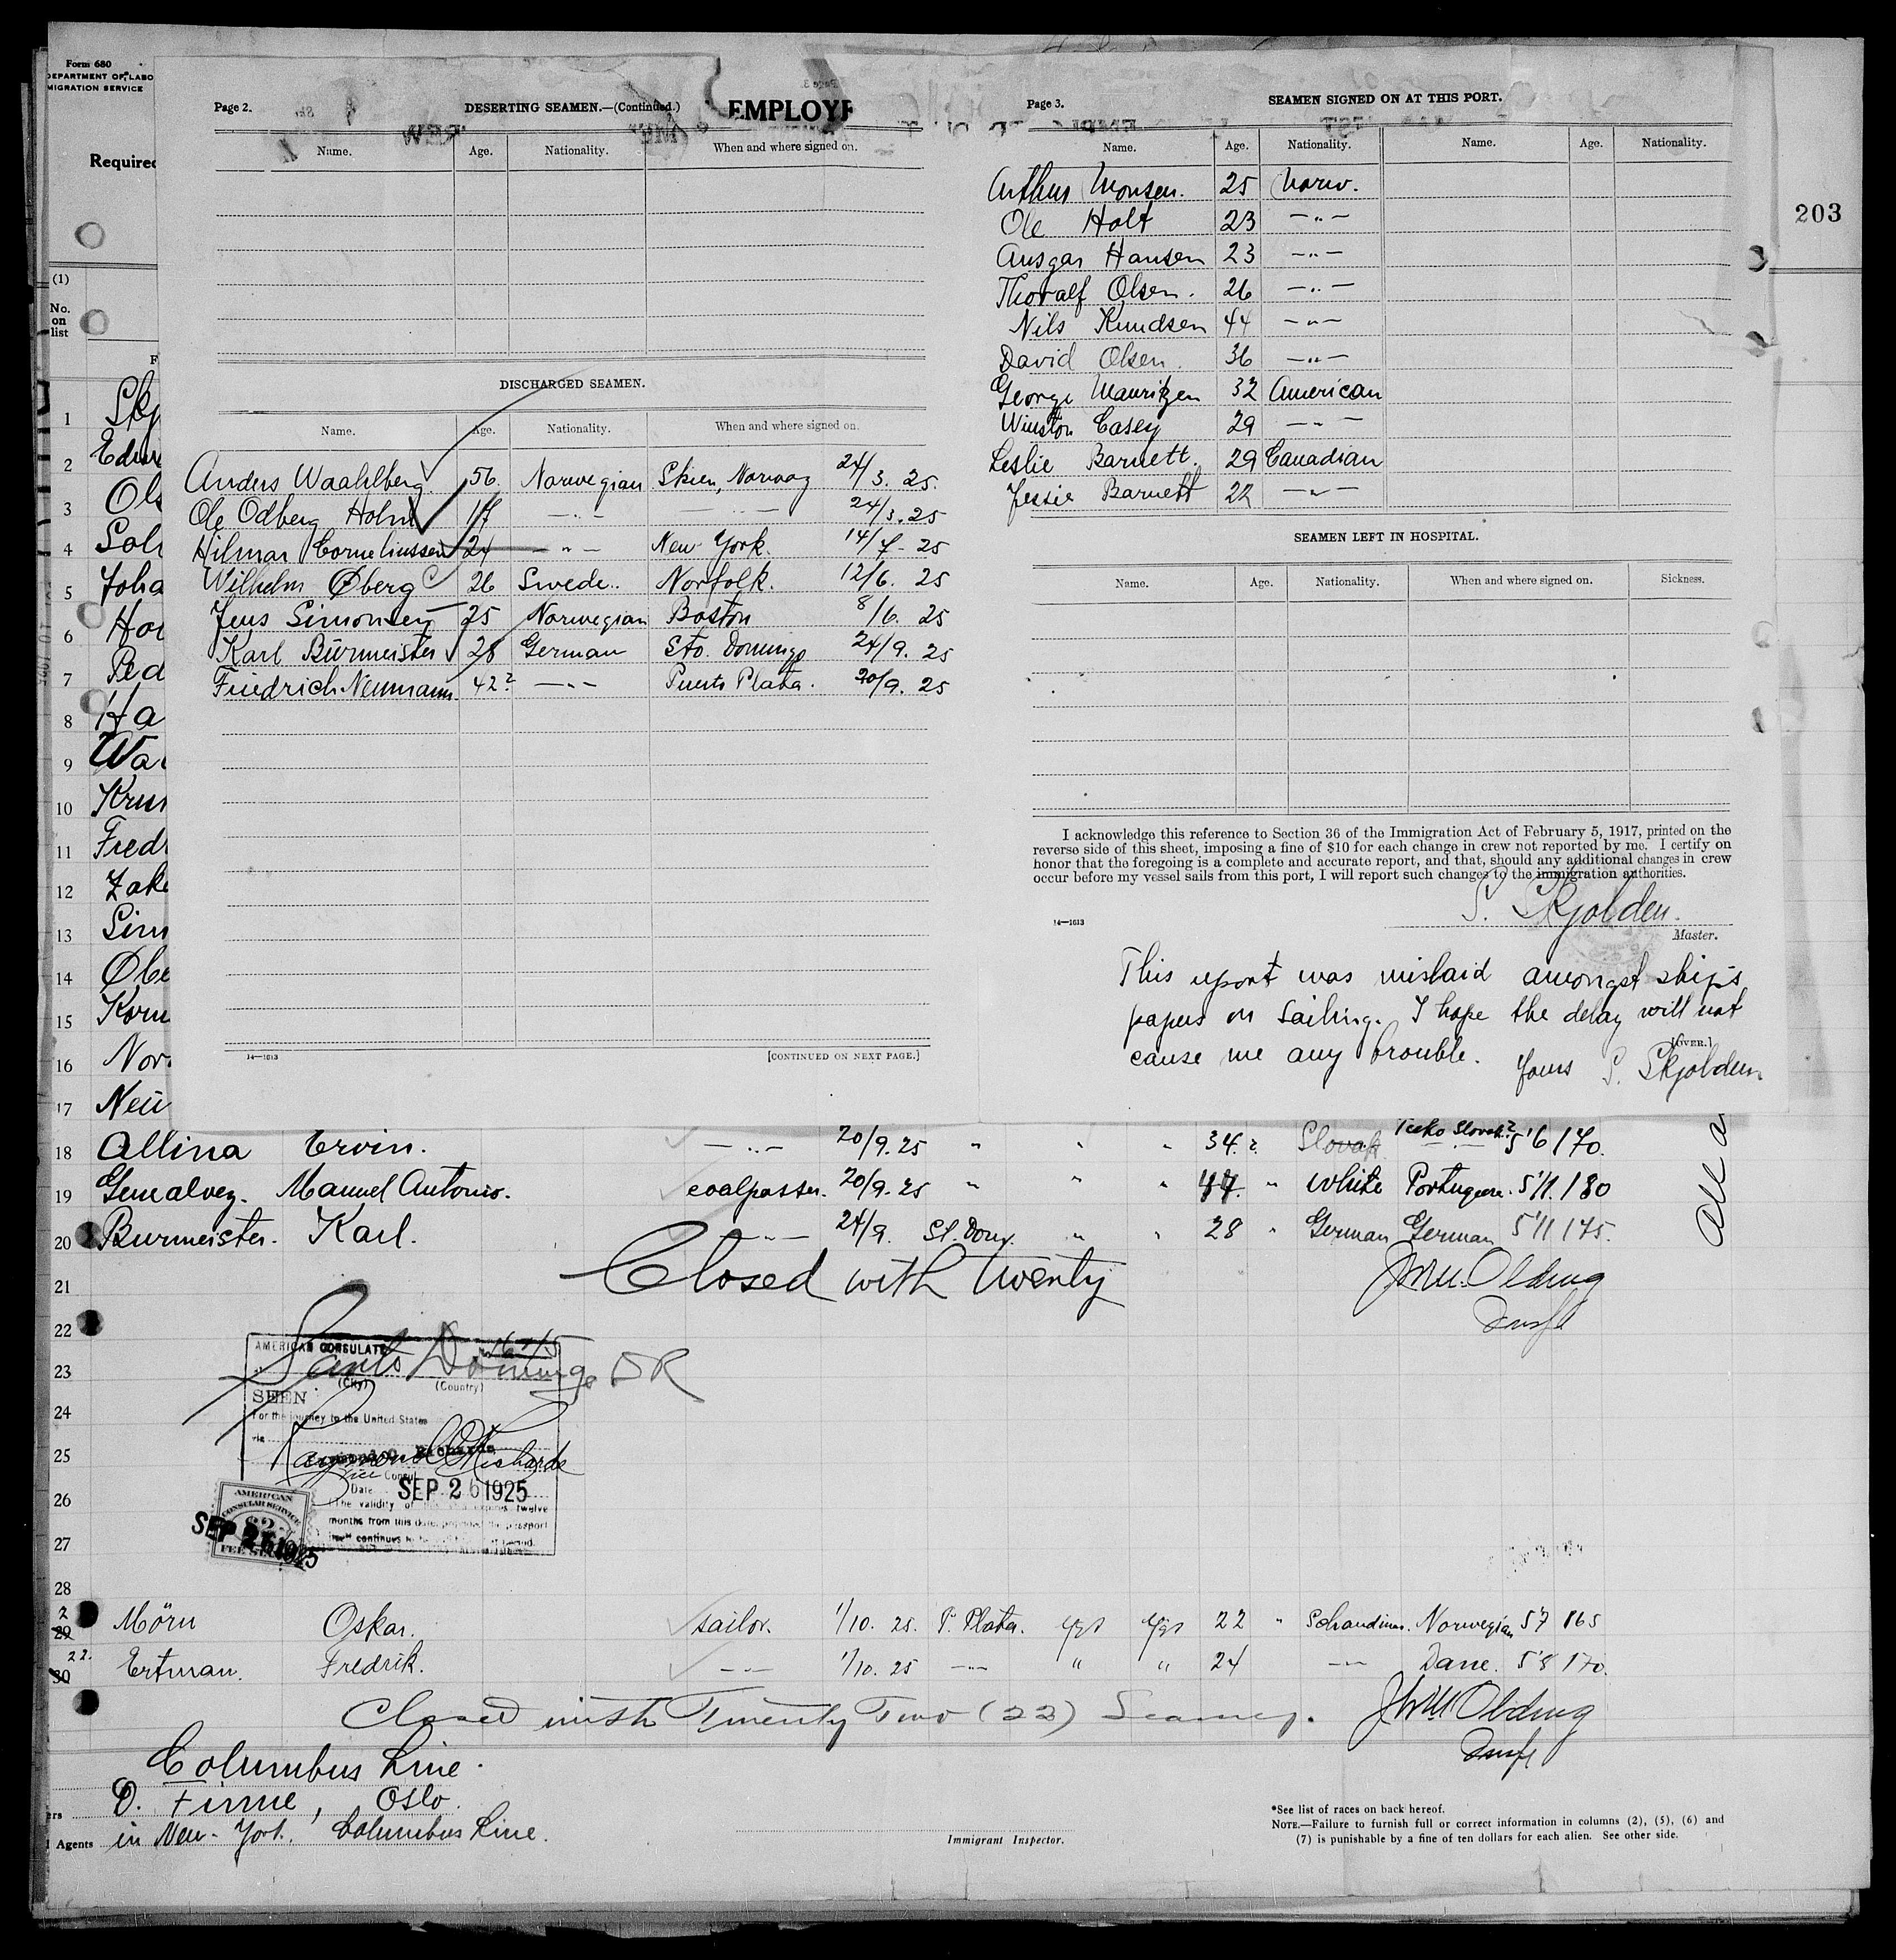 Form 680
DEPARTMENT OF LABO
MIGRATION SERVICE
Required
EMPLOYE
203
(1)
No.
on
list
Page 2.
DESERTING SEAMEN.—(Continued.)
Name. Age. Nationality. When and where signed on.
DISCHARGED SEAMEN.
Name. Age. Nationality. When and where signed on.
Anders Waahlberg 56 Norwegian Skien, Norway 24/3. 25.
Ole Odberg Holm 17 —"— —"— 24/3. 25
Hilmar Corneliussen 24 —"— New York. 14/7- 25
Wilhelm Øberg 26 Swede. Norfolk. 12/6. 25
Jens Simonsen 25 Norwegian Boston 8/6. 25
Karl Bürmeister 28 German Sto. Domingo 24/9. 25
Friedrich Neumann. 42? —"— Puerto Plata. 20/9. 25
14—1613
[CONTINUED ON NEXT PAGE.]
Page 3.
SEAMEN SIGNED ON AT THIS PORT.
Name. Age. Nationality. Name. Age. Nationality.
Arthur Monsen. 25 Norw.
Ole Holt 23 —"—
Ansgar Hansen 23 —"—
Thoralf Olsen. 26 —"—
Nils Knudsen 44 —"—
David Olsen. 36 —"—
George Mauritzen 32 American
Winston Casey 29 —"—
Leslie Barnett. 29 Canadian
Jessie Barnett 22 —"—
SEAMEN LEFT IN HOSPITAL.
Name. Age. Nationality. When and where signed on. Sickness.
I acknowledge this reference to Section 36 of the Immigration Act of February 5, 1917, printed on the
reverse side of this sheet, imposing a fine of $10 for each change in crew not reported by me. I certify on
honor that the foregoing is a complete and accurate report, and that, should any additional changes in crew
occur before my vessel sails from this port, I will report such changes to the immigration authorities.
S. Skjolden.
14—1613
Master.
This report was mislaid amongst ship's
papers on sailing. I hope the delay will not
[OVER.]
cause me any trouble. Yours S. Skjolden
F
1 Skj
2 Edw
3 Ols
4 Sol
5 Joha
6 Hor
7 Ped
8 Ha
9 Wa
10 Krus
11 Fredr
12 Jake
13 Sim
14 Øbe
15 Korn
16 Nor
17 Neu
18 Allina Ervin. —"— 20/9.25 " " " 34.? Slovak Tceko Slovak? 5'6 170.
19 Gencalvez. Manuel Antonio. coalpasser. 20/9.25 " " " 44. " White Portuguese. 5'11. 180
20 Burmeister. Karl. —"— 24/9. St. Dom. " " 28 " German German 5'11 175.
21 Closed with twenty
22
23
24
25
26
27
28
AMERICAN CONSULATE
Santo Domingo DR
(City) (Country)
SEEN
For the journey to the United States
via
Raymond O. Richards
Vice Consul
Date SEP 26 1925
The validity of this visa expires twelve
months from this date, provided the passport
itself continues to be
AMERICAN
CONSULAR SERVICE
$2
FEE STAMP
SEP 26 1925
29 Mörn Oskar. sailor. 1/10. 25. P. Plata. yes yes 22 " Schandinav. Norwegian 5'7 165
22. 30 Ertman. Fredrik. —"— 1/10. 25 —"— " " 24 —"— Dane. 5'8 170.
Closed with Twenty Two (22) Seamen.
Columbus Line.
ers O. Finne, Oslo.
l Agents in New-York, Columbus Line.
Immigrant Inspector.
*See list of races on back hereof.
NOTE.—Failure to furnish full or correct information in columns (2), (5), (6) and
(7) is punishable by a fine of ten dollars for each alien. See other side.